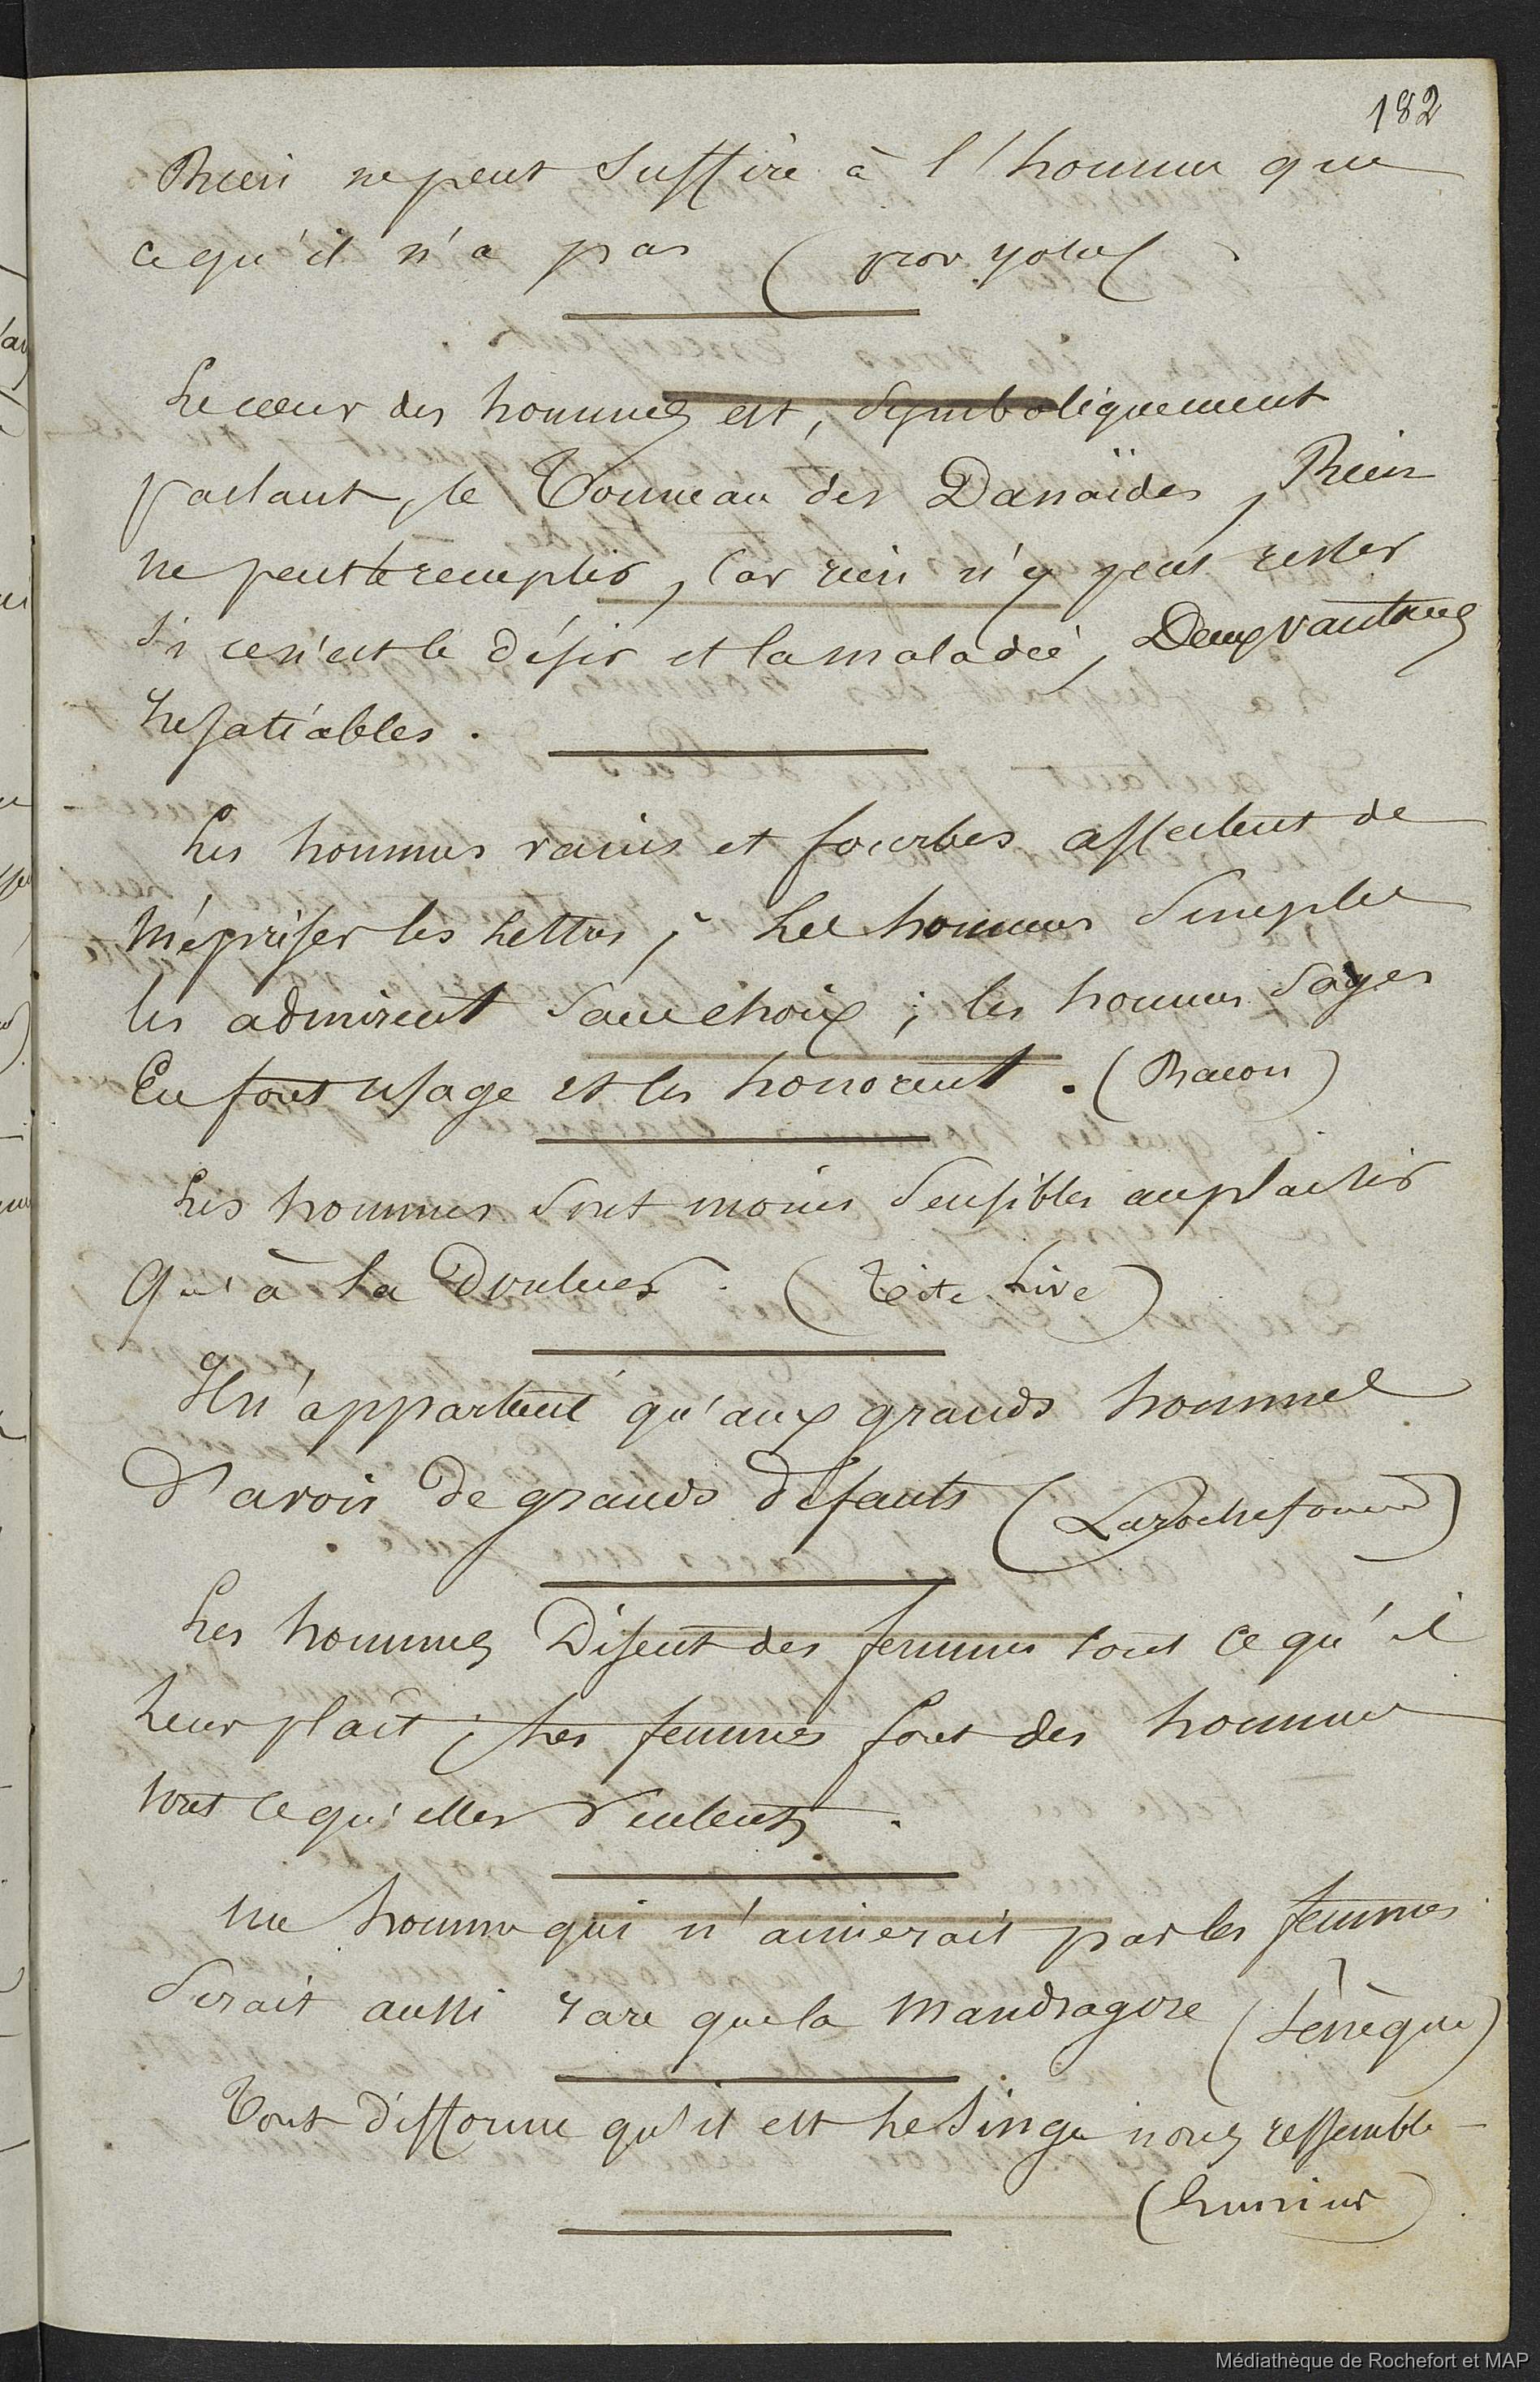 182
Rien ne peut suffire à l'homme que
ce qu'il n'a pas (prov. yolof)
Le cœur des hommes est, symboliquement
parlant, le Tonneau des Danaïdes, Rien
ne peut le remplir, Car rien n'y peut rester
si ce n'est le désir et la maladie, Deux vautours
insatiables.
Les hommes vains et fourbes affectent de
mépriser les Lettres ; Les hommes simples
les admirent sans choix ; les hommes sages
En font usage et les honorent. (Bacon)
Les hommes sont moins sensibles au plaisir
Qu'à la Douleur. (Tite Live)
Il n'appartient qu'aux grands hommes
D'avoir De grands défauts (Larochefoucd)
Les hommes Disent des femmes tout ce qu'il
Leur plaît ; Les femmes font des hommes
tout ce qu'elles veulent.
un homme qui n'aimerait pas les femmes
serait aussi rare que la mandragore (Sénèque)
Tout difforme qu'il est Le Singe nous ressemble
(Ennius)
Médiathèque de Rochefort et MAP